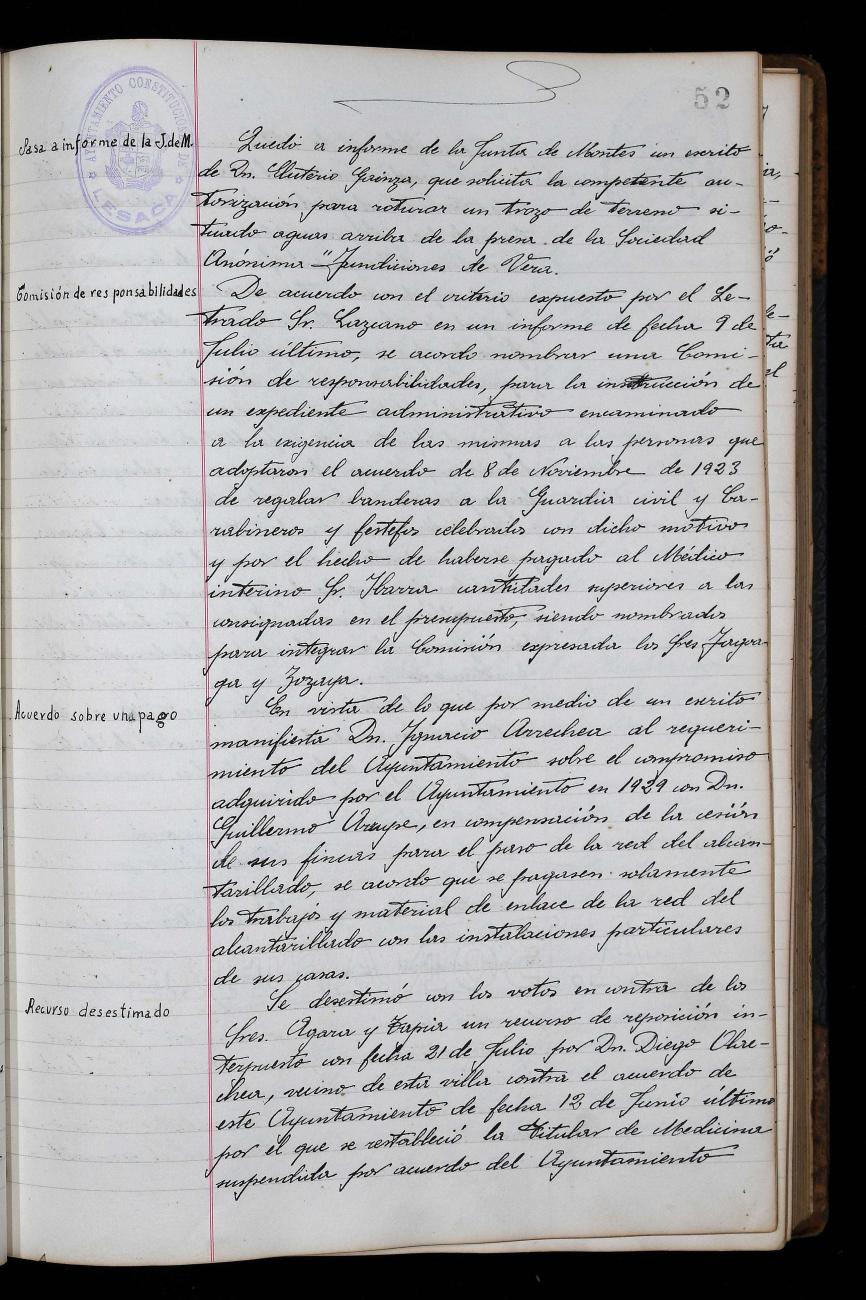 52
AYUNTAMIENTO CONSTITUCIONAL DE
LESACA
Pasa a informe de la J. de M.
Quedó a informe de la Junta de Montes un escrito
de Dn. Eluterio Gainza, que solicita la competente au-
torización para roturar un trozo de terreno si-
tuado aguas arriba de la presa de la Sociedad
Anónima "Fundiciones de Vera.
Comisión de responsabilidades
De acuerdo con el criterio expuesto por el Le-
trado Sr. Lazcano en un informe de fecha 9 de
Julio último, se acordo nombrar una Comi-
sión de responsabilidades, para la instrucción de
un expediente administrativo encaminado
a la exigencia de las mismas a las personas que
adoptaron el acuerdo de 8 de Noviembre de 1923
de regalar banderas a la Guardia civil y Ca-
rabineros y festejos celebrados con dicho motivo
y por el hecho de haberse pagado al Médico
interino Sr. Ibarra cantidades superiores a las
consignadas en el presupuesto, siendo nombrados
para integrar la Comisión expresada los Sres Jagoa-
ga y Zozaya.
Acuerdo sobre un pago
En vista de lo que por medio de un escrito
manifiesta Dn. Ignacio Arrechea al requeri-
miento del Ayuntamiento sobre el compromiso
adquirido por el Ayuntamiento en 1929 con Dn.
Guillermo en compensación de la cesión
de sus fincas para el paso de la red del alcan-
tarillado, se acordo que se pagasen solamente
los trabajos y material de enlace de la red del
alcantarillado con las instalaciones particulares
de sus casas.
Recurso desestimado
Se desestimó con los votos en contra de los
Sres. Agara y Tapia un recurso de reposición in-
terpuesto con fecha 21 de Julio por Dn. Diego OLae-
chea, vecino de esta villa contra el acuerdo de
este Ayuntamiento de fecha 12 de Junio último
por el que se restableció la Titular de Medicina
suspendida por acuerdo del Ayuntamiento